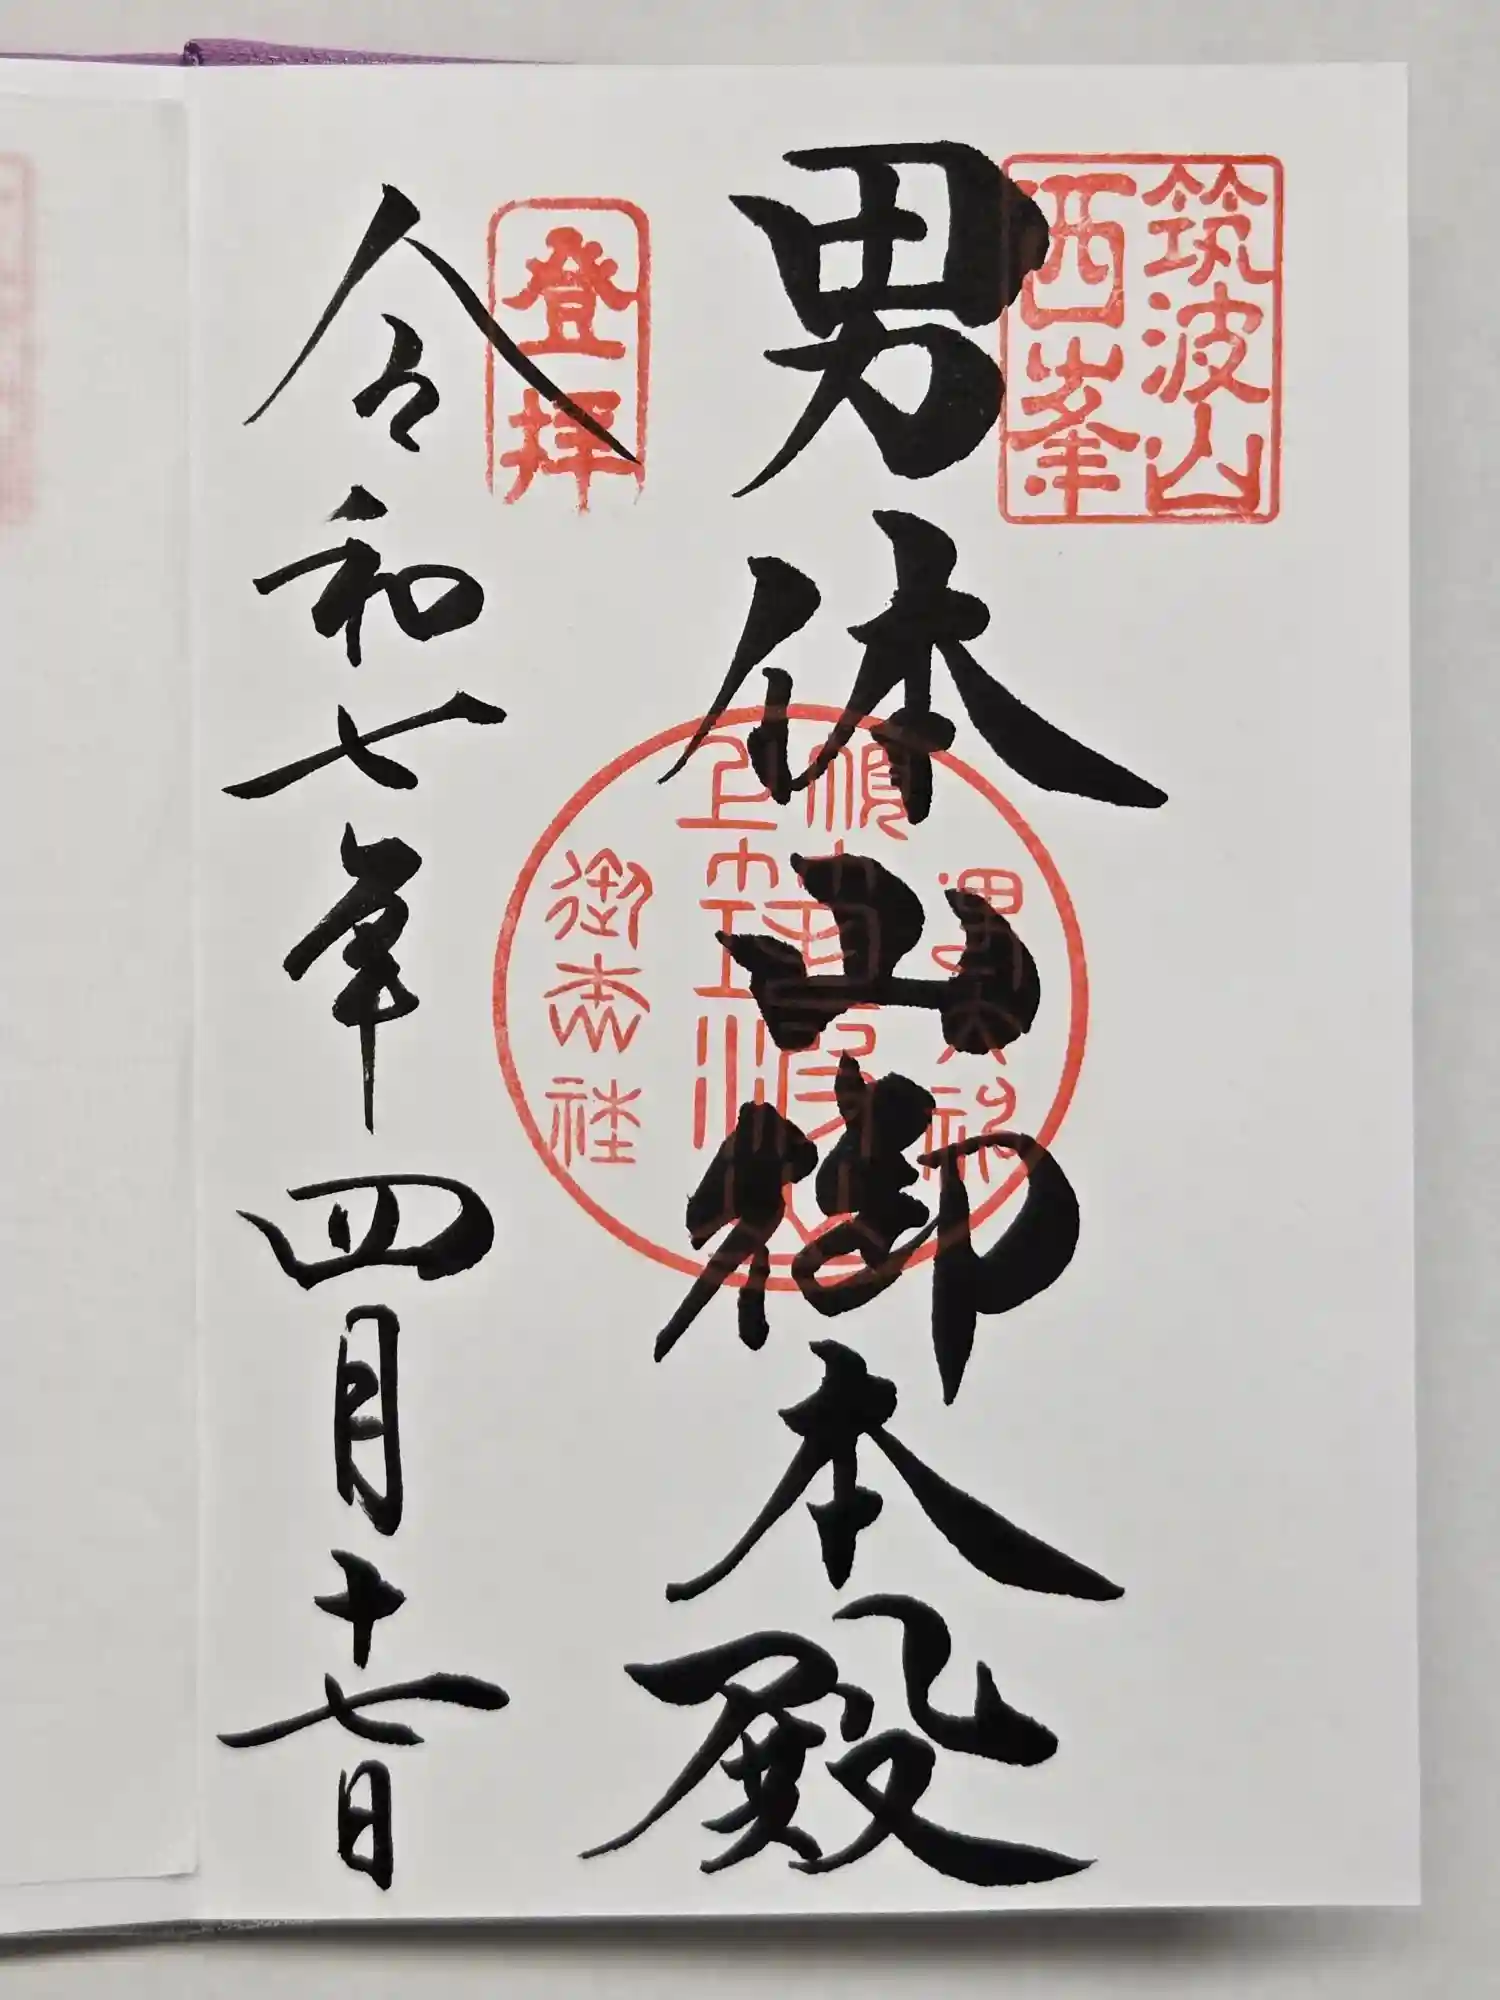 筑波山
西峯
男体山御本殿
登拝
令和七年四月十七日